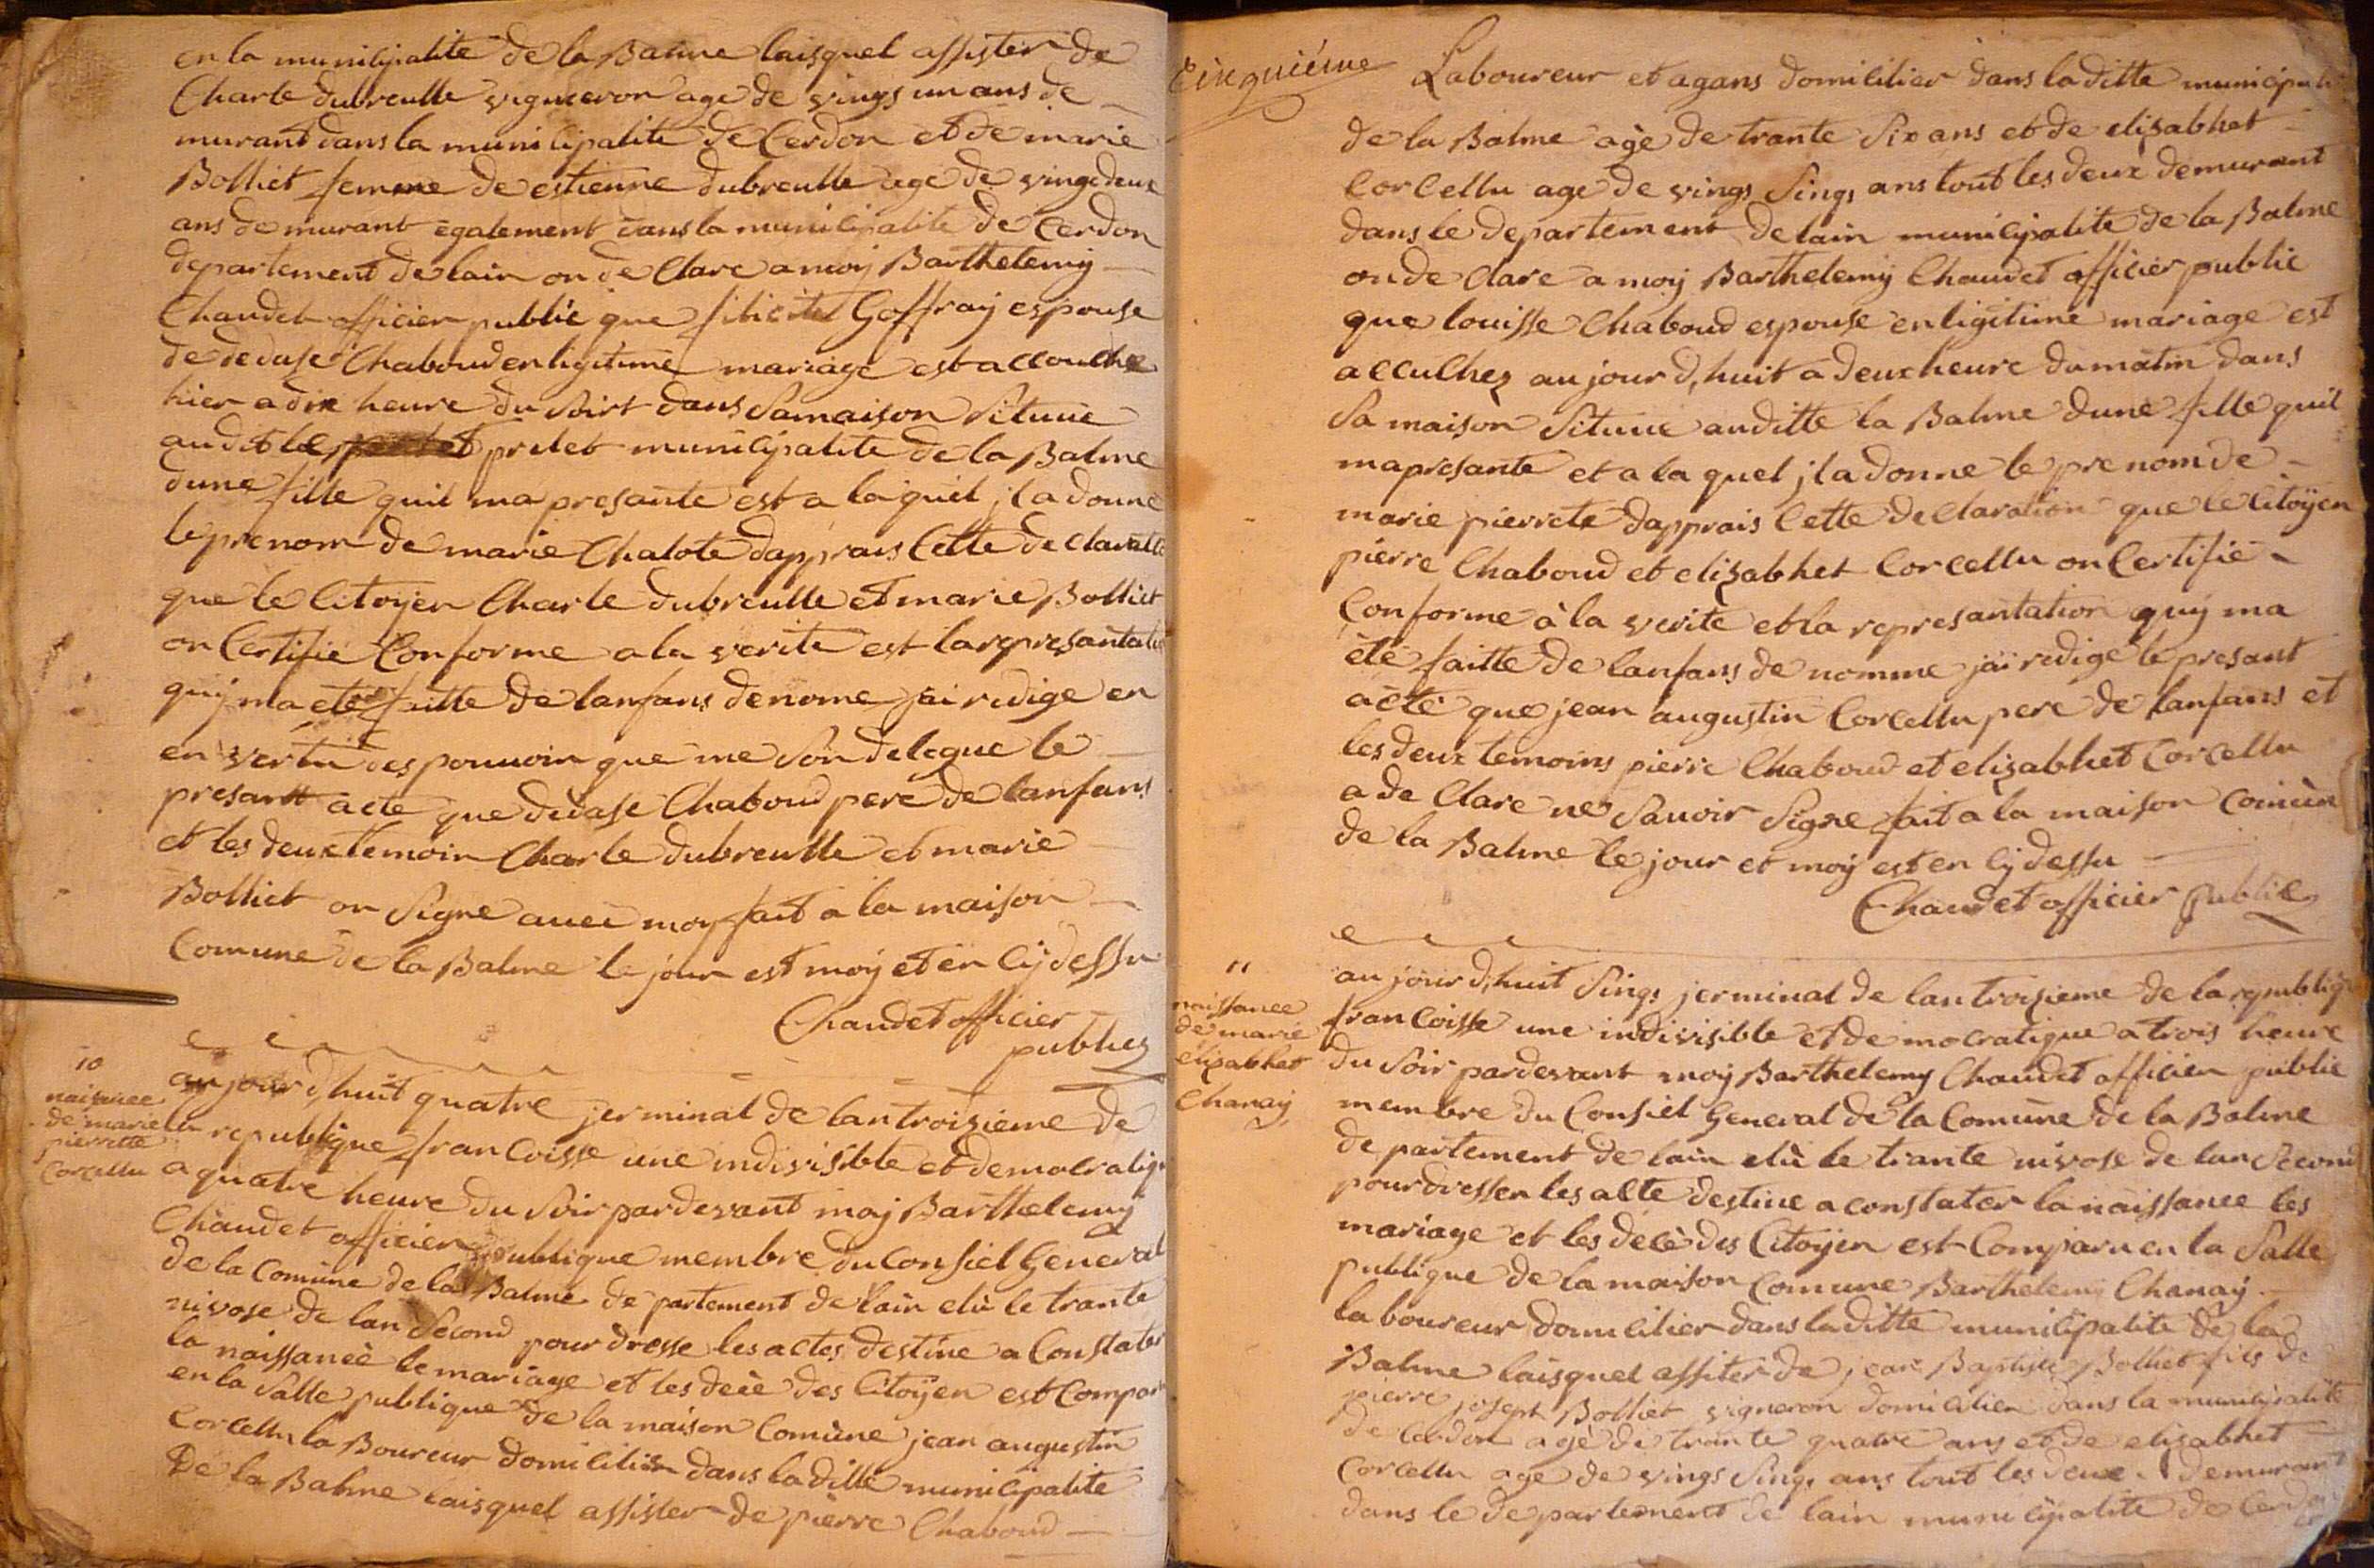 en la municipalité de la Balme laisquel assister de
Charle dubreulle vigneron age de vings un ans de
murant dans la municipalite de Cerdon et de marie
Bolliet femme de estienne dubreulle age de vingedeux
ans demurant également dans la municipalite de Cerdon
departement de lain on de Clare a moÿ Barthelemÿ
Chaudet officier public que felicite Goffraÿ espouse
de dedase Chaboud en ligitime mariage est accouche
hier a dix heure du soirt dans Samaison Situue
audit le prelet municipalite de la Balme
dune fille quil ma presante est a laquel jl a donne
le prenom de marie Chalote dapprais Cette de Claratio
que le Citoyen Charle dubreulle et marie Bolliet
on Certifie Conforme a la verite est la represantatio
quÿ ma ete faitte de lanfans denome jai redige en
en vertu des pouuoir que me Son delegue le
presant acte que dedase Chaboud pere de lanfans
et les deux temoin Charle dubreulle et marie
Bolliet on Signe auec moy fait a la maison
Comune de la Balme le jour est moÿ et en cÿ dessu
Chaudet officier
publiez
10
naisance
de marie
pierrette
Corcellu
au jour d,huit quatre jerminal de lan troizieme de
la republique francoisse une indivisible et democratiq
a quatre heure du Soir pardevant moÿ Barthelemÿ
Chaudet officier publique membre du Consiel General
de la Comune de la Balme departement de lain elù le trante
nivose de lan Second pour dresse les actes destine a Constater
la naissance le mariage et les decè des Citoÿen est Comparu
en la Salle publique de la maison Comùne jean augustin
Corcellu la Boureur domicilier dans la ditte municipalite
De la Balme laisquel assister de pierre Chaboud
Cinquiéme
Laboureur et agans domicilier dans la ditte municipali
de la Balme agè de trante Six ans et de elizabhet
Corcellu age de vings Sings ans tout les deux demurant
dans le departement de lain municipalite de la Balme
on de Clare a moÿ Barthelemÿ Chaudet officier public
que louisse Chaboud espouse en ligitime mariage est
accuchez au jour d,huit a deux heure du matin dans
Sa maison Situue auditte la Balme dune fille quil
ma presante et a la quel jl a donne le prenom de
marie pierrete dapprais Cette declaration que le Citoÿen
pierre Chaboud et elizabhet Corcellu on Certifie
Conforme à la verite et la represantation quÿ ma
ète faitte de lanfans de nomme jai redige le presant
acte que jean augustin Corcellu pere de lanfans et
les deux temoins pierre Chaboud et elizabhet Corcellu
a de Clare ne Sauoir Signe fait a la maison Comùne
de la Balme le jour et moÿ est en cÿ dessu
Chaudet officier public
11
naissance
de marie
elizabhet
Chanaÿ
au jour d,huit Sings jerminal de lan troizieme de la republiq
francoisse une indivisible et de mocratique a trois heure
du Soir pardevant moÿ Barthelemy Chaudet officier public
membre du Consiel General de la Comune de la Balme
de partement de lain elù le trante nivose de lan Second
pour dresser les acte destine a constater la naissance les
mariage et les decè des Citoÿen est Comparu en la Salle
publique de la maison Comune Barthelemÿ Chanaÿ
laboureur domicilier dans la ditte municipalite de la
Balme laisquel assiter de jean Baptiste Bolliet fils de
pierre josept Bolliet vigneron domicilier dans la municipalite
de Cerdon agè de trante quatre ans et de elizabhet
Corcellu age de vings Sings ans tout les deux demurant
dans le departement de lain municipalite de Cerdon